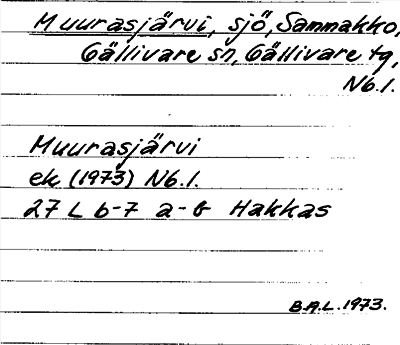 Muurasjärvi, sjö, Sammakko,
Gällivare sn, Gällivare tg,
Nb.l.
Muurasjärvi
ek (1973) Nb.l.
27 L b-7 a-b Hakkas
B.A.L. 1973.